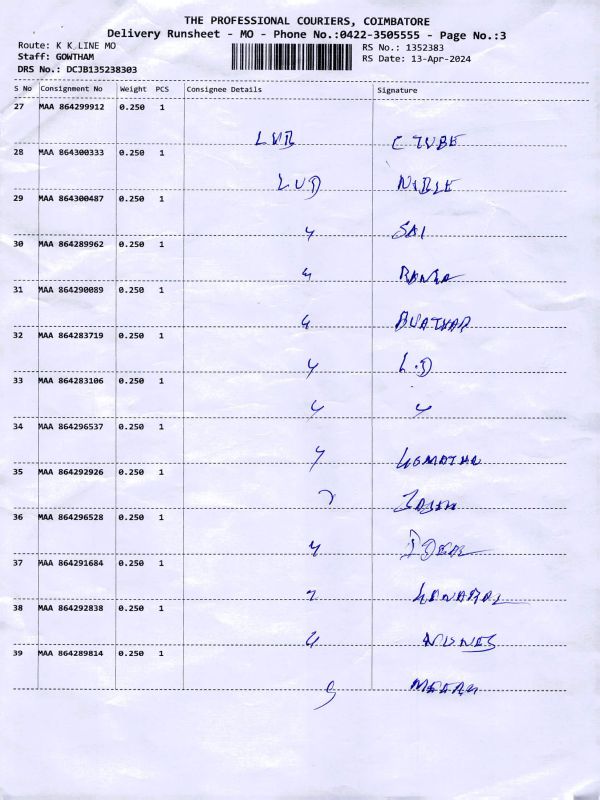 THE PROFESSIONAL COURIERS, COIMBATORE
Delivery Runsheet - MO - Phone No.:0422-3505555 - Page No.:3
Route: K K LINE MO
Staff: GOWTHAM
DRS No.: DCJB135238303
RS No.: 1352383
RS Date: 13-Apr-2024
S No Consignment No Weight PCS Consignee Details Signature
27 MAA 864299912 0.250 1
C TUBE
28 MAA 864300333 0.250 1
LUD NIBLE
29 MAA 864300487 0.250 1
SAI
30 MAA 864289962 0.250 1
31 MAA 864290089 0.250 1
32 MAA 864283719 0.250 1
L.D
33 MAA 864283106 0.250 1
34 MAA 864296537 0.250 1
35 MAA 864292926 0.250 1
36 MAA 864296528 0.250 1
37 MAA 864291684 0.250 1
38 MAA 864292838 0.250 1
39 MAA 864289814 0.250 1